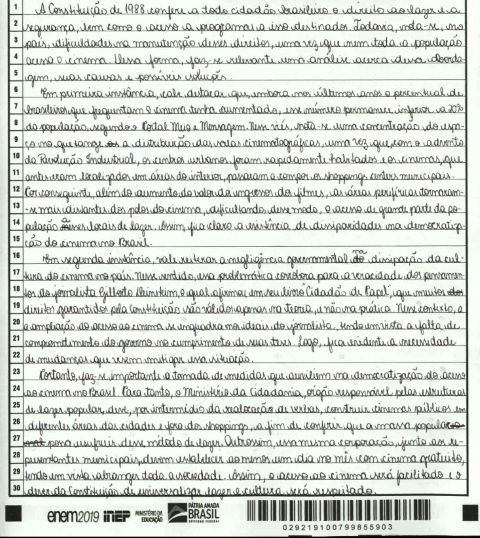 1 A Constituição de 1988 confere a todo cidadão brasileiro o direito ao lazer e a
2 segurança, bem como o acesso a programas a isso destinados. Todavia, nota-se, no
3 país, dificuldades na manutenção desses direitos, uma vez que nem toda a população
4 acessa o cinema. Dessa forma, faz-se relevante uma análise acerca dessa aborda-
5 gem, suas causas e possíveis soluções.
6 Em primeira instância, cabe destacar que, embora nos últimos anos o percentual de
7 brasileiros que frequentam o cinema tenha aumentado, esse número permanece inferior a 20%
8 da população, segundo o Portal Meio e Mensagem. Nesse viés, nota-se uma concentração do espa-
9 ço no que tange a distribuição das salas cinematográficas, uma vez que, com o advento
10 da Revolução Industrial, os centros urbanos foram rapidamente habitados e os cinemas, que
11 antes eram localizados em áreas do interior, passaram a compor os shoppings centers municipais.
12 Por conseguinte, além do aumento do valor do ingresso dos filmes, as áreas periféricas tornaram-
13 -se mais distantes dos polos do cinema, dificultando, desse modo, o acesso de grande parte da po-
14 pulação locais de lazer. Assim, fica claro a existência de disparidades na democratiza-
15 ção do cinema no Brasil.
16 Em segunda instância, vale reiterar a negligência governamental na dissipação da cul-
17 tura do cinema no país. Nesse sentido, essa problemática corrobora para a veracidade dos pensamen-
18 tos do jornalista Gilberto Dimenstein, o qual afirma, em seu livro "Cidadão de Papel", que muitos
19 direitos garantidos pela Constituição são válidos apenas na teoria, e não na prática. Nesse contexto, a
20 a ampliação do acesso ao cinema se enquadra nos ideais do jornalista, tendo em vista a falta de
21 comprometimento do governo no cumprimento de suas leis. Logo, fica evidente a necessidade
22 de mudanças que visem mitigar essa situação.
23 Portanto, faz-se importante a tomada de medidas que auxiliem na democratização do acesso
24 ao cinema no Brasil. Para tanto, o Ministério da Cidadania, órgão responsável pelas estruturas
25 de lazer popular, deve, por intermédio da realocação de verbas, construir cinemas públicos em
26 diferentes áreas das cidades e fora dos shoppings, a fim de conferir que a massa popular
27 possa usufruir desse método de lazer. Outrossim, essa mesma corporação, junto aos re-
28 presentantes municipais, devem estabelecer ao menos um dia no mês com cinema gratuito,
29 tendo em vista abranger toda a sociedade. Assim, o acesso ao cinema será facilitado e o
30 dever da Constituição de universalizar lazer e cultura será respeitado.
enem2019 INEP MINISTÉRIO DA EDUCAÇÃO PÁTRIA AMADA BRASIL GOVERNO FEDERAL
029219100799855903